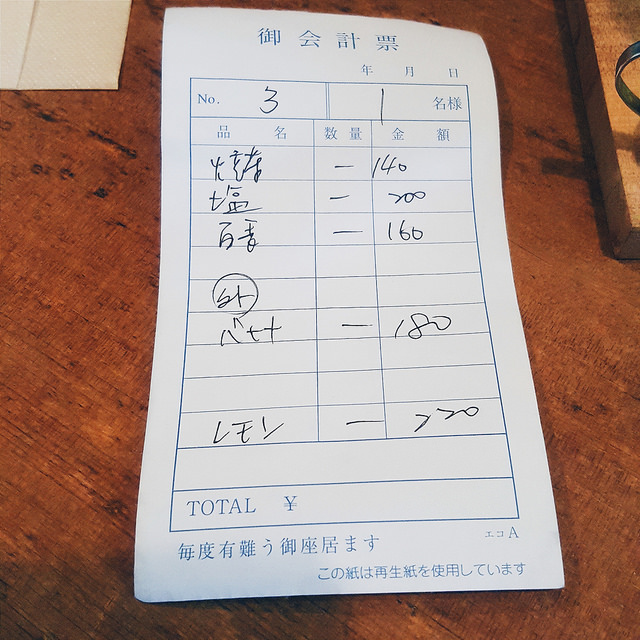 御会計票
年 月 日
No. 3 1 名様
品名 数量 金額
一 140
塩 一 200
一 160
外
バナナ 一 180
レモン 一 220
TOTAL ¥
毎度有難う御座居ます
エコA
この紙は再生紙を使用しています